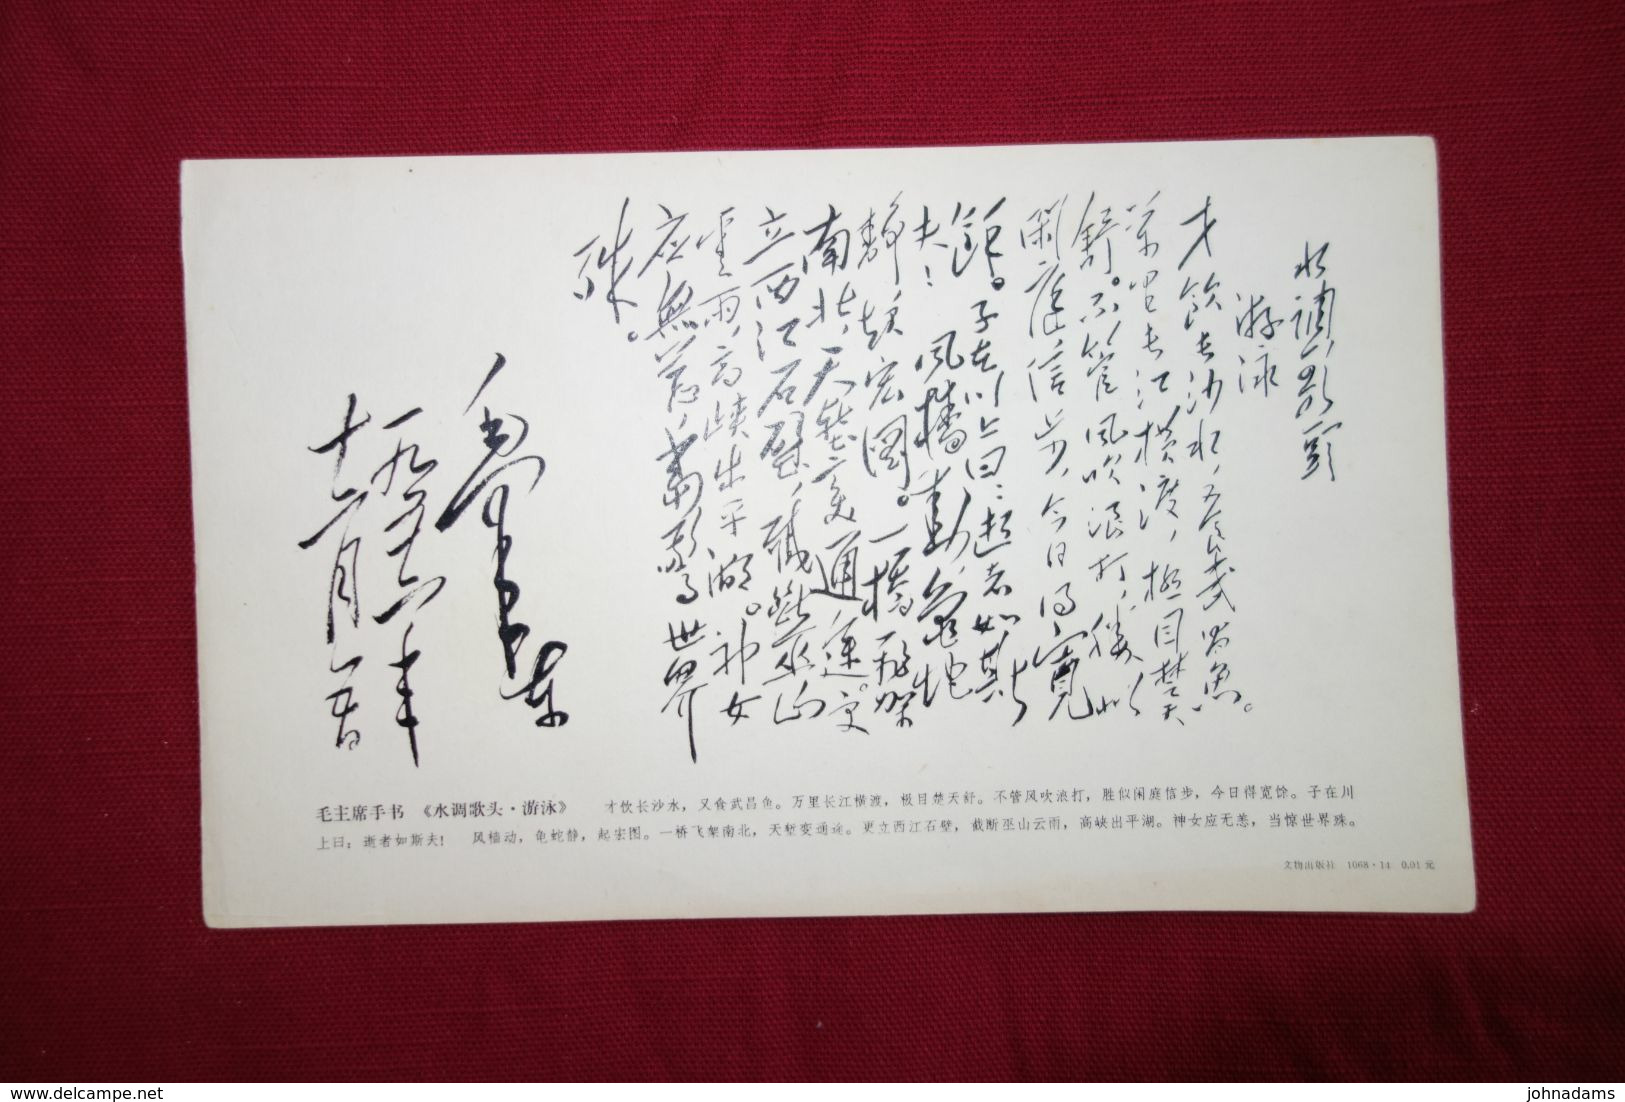 水调歌头
游泳
才饮长沙水，又食武昌鱼。
万里长江横渡，极目楚天
舒。不管风吹浪打，胜似
闲庭信步，今日得宽
馀。子在川上曰：逝者如斯
夫！ 风樯动，龟蛇
静，起宏图。一桥飞架
南北，天堑变通途。更
立西江石壁，截断巫山
云雨，高峡出平湖。神女
应无恙，当惊世界
殊。
毛泽东
一九五六年
十二月五日
毛主席手书 《水调歌头·游泳》 才饮长沙水，又食武昌鱼。万里长江横渡，极目楚天舒。不管风吹浪打，胜似闲庭信步，今日得宽馀。子在川
上曰：逝者如斯夫！ 风樯动，龟蛇静，起宏图。一桥飞架南北，天堑变通途。更立西江石壁，截断巫山云雨，高峡出平湖。神女应无恙，当惊世界殊。
文物出版社 1068·14 0.01元
Copyright © delcampe.net
johnadams